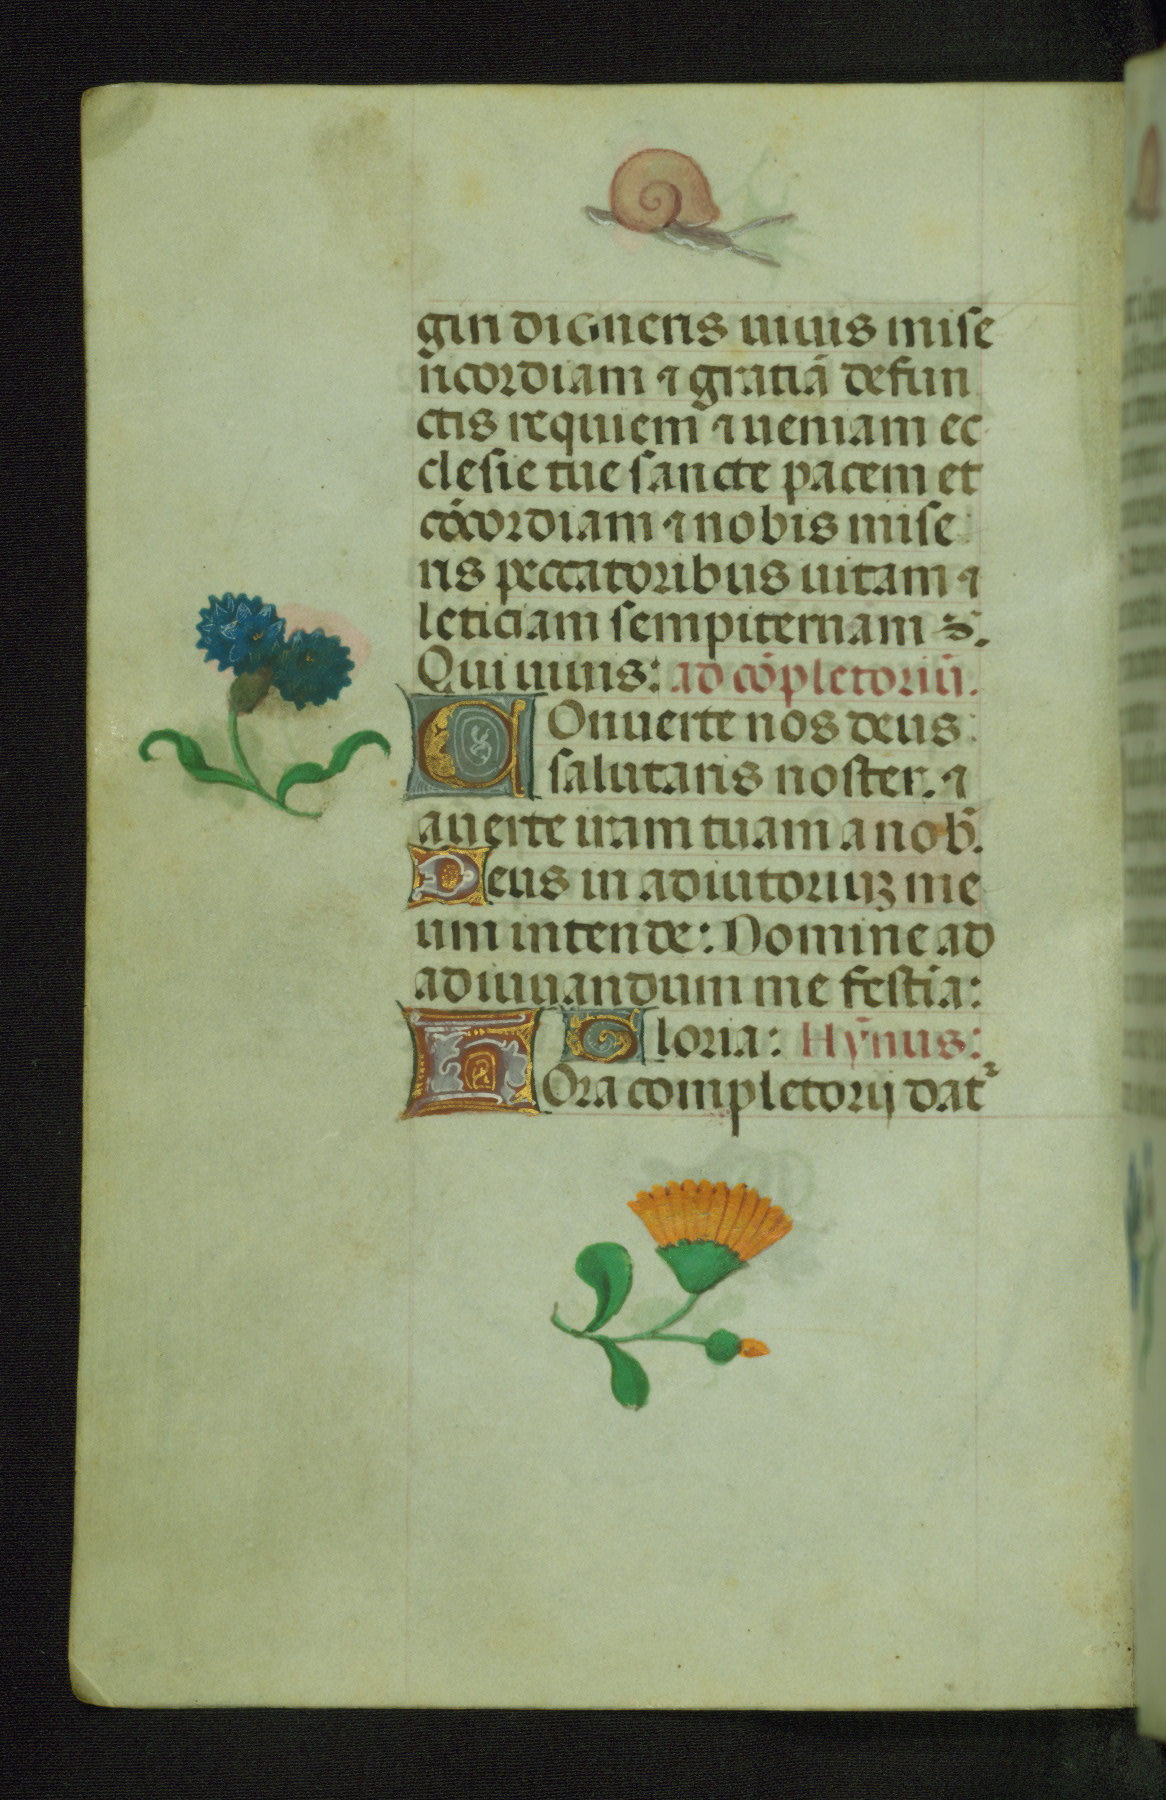 giri digneris uiuis mise
ricordiam ⁊ gratiā defun
ctis requiem ⁊ ueniam ec
clesie tue sancte pacem et
cōcordiam ⁊ nobis mise
ris peccatoribus uitam ⁊
leticiam sempiternam
Qui uiuis: ad cōpletoriū.
Conuerte nos deus
salutaris noster. ⁊
auerte iram tuam a nob̄.
Deus in adiutoriuꝫ me
um intende: Domine ad
adiuuandum me festīa:
Gloria: Hȳnus:
Hora completorij dat᷑